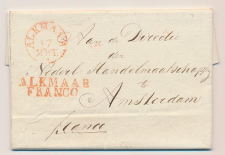 ALKMAAR
17
Aan de Directie
der
Nederl Handelmaatschappy
ALKMAAR
FRANCO
Amsterdam
franco